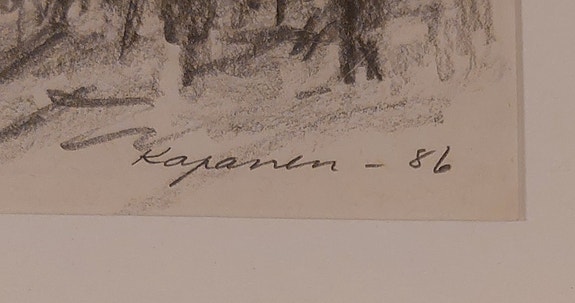 Kapanen - 86